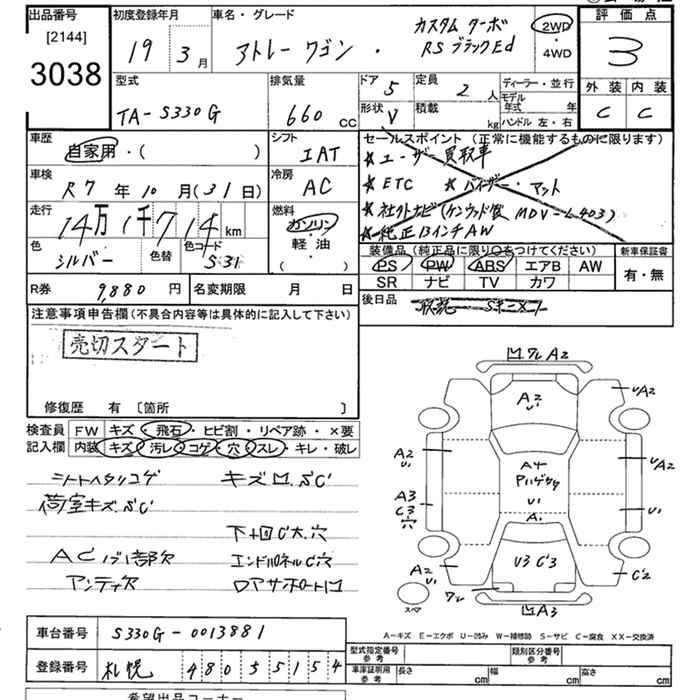 出品番号 [2144] 3038
初度登録年月 19 3月
車名・グレード アトレーワゴン・カスタム ターボ RS ブラックEd
2WD・4WD
評価点 3
外装 C 内装 C
型式 TA-S330G
排気量 660 CC
ドア 5 定員 2人
形状 V 積載 kg
ディーラー・並行
モデル年式 年
ハンドル 左・右
車歴 自家用・( )
シフト IAT
車検 R7年10月(31日)
冷房 AC
走行 14万1千714km
燃料 ガソリン・軽油 ( )
色 シルバー 色替 色コード S31
セールスポイント (正常に機能するものに限ります)
★ユーザー買取車
★ETC ★バイザー・マット
★社外ナビ(ケンウッド製 MDV-L403)
★純正13インチAW
装備品 (純正品に限り○をつけてください)
新車保証書 有・無
PS PW ABS エアB AW
SR ナビ TV カワ
R券 9,880円
名変期限 月 日
後日品
注意事項申告欄(不具合内容等は具体的に記入して下さい)
売切スタート
修復歴 有 〔箇所 〕
検査員記入欄
FW キズ・飛石・ヒビ割・リペア跡・×要
内装 キズ・汚レ・コゲ・穴・スレ・キレ・破レ
シートヘタリコゲ キズ凹.S.C
荷室キズ.S.C
下廻C大.穴
ACノブ1部欠 エンドパネルC穴
アンテ欠 ロアサポート凹
凹ワレA2
A2 U1
UA2
A2 U1
A4 Pハゲ
U1
UA2
A3 C3 穴
U1
A1
U3 C3
A2 U1
C2
ワレ
凹A3
スペア
A-キズ E-エクボ U-凹み W-補修跡 S-サビ C-腐食 XX-交換済
車台番号 S330G-0013881
登録番号 札幌 480 55154
型式指定番号 参考
類別区分番号 参考
車庫証明用 参考 長さ cm 幅 cm 高さ cm
希望出品コーナー